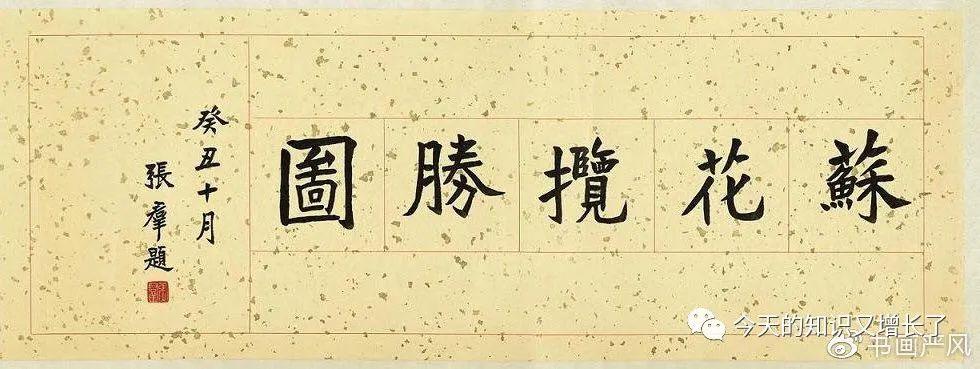 蘇花攬勝圖
癸丑十月
張羣題
今天的知识又增长了
书画严风